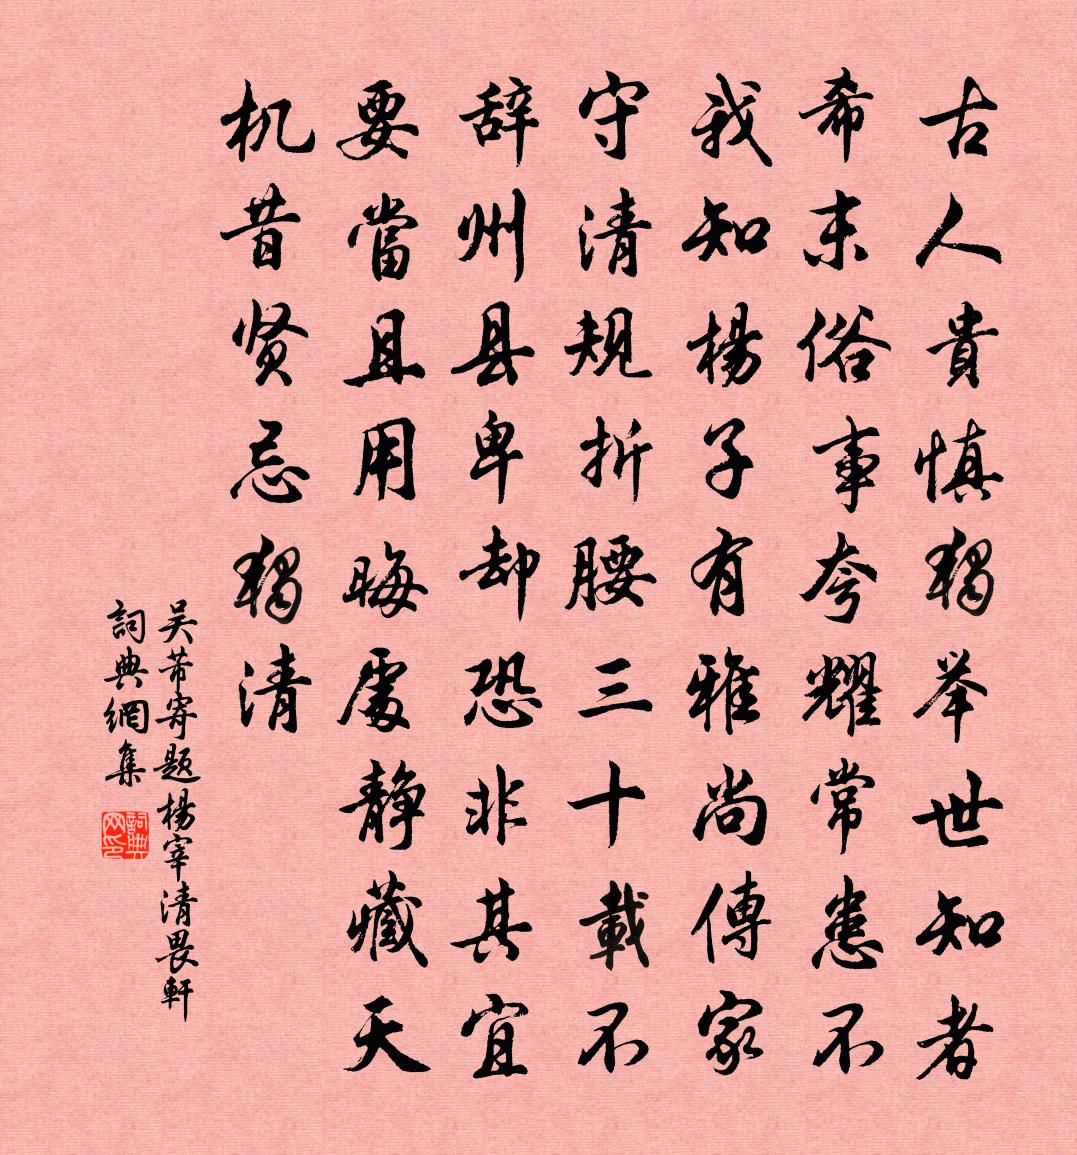 古人貴慎獨举世知者
希末俗事夸耀常患不
我知楊子有雅尚傳家
守清規折腰三十載不
辞州县卑却恐非其宜
要當且用晦處静藏天
机昔贤忌獨清
吴芾寄题楊宰清畏軒
詞典網集
詞典
网印